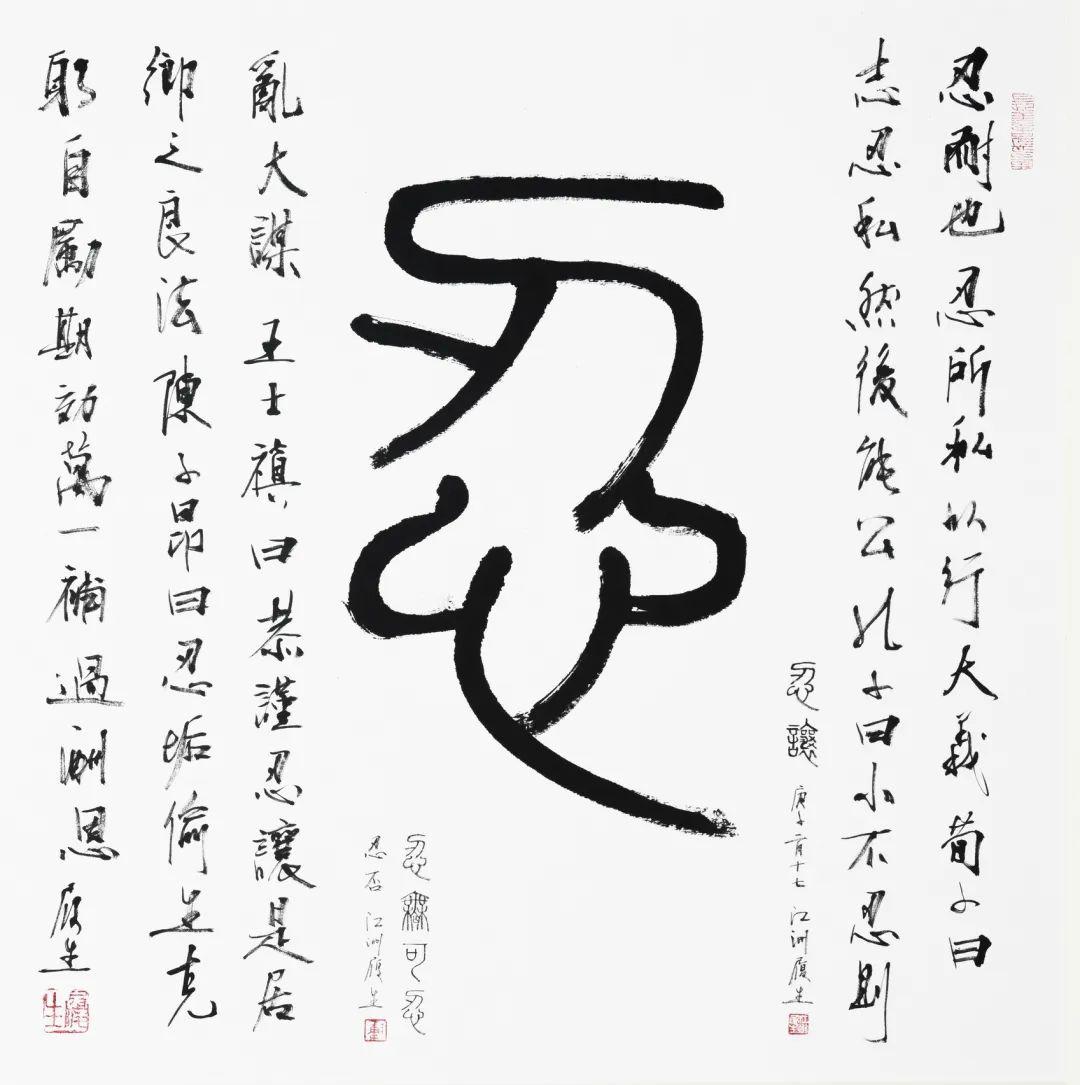 忍耐也忍所私以行大義荀子曰
志忍私然後能公孔子曰小不忍則
忍讓
庚子二月十七 江洲履生
忍
忍無可忍
忍否 江洲履生
亂大謀 王士禛曰恭謹忍讓是居
鄉之良法陳子昂曰忍垢偷生克
躬自勵期効萬一補過酬恩 履生
履生